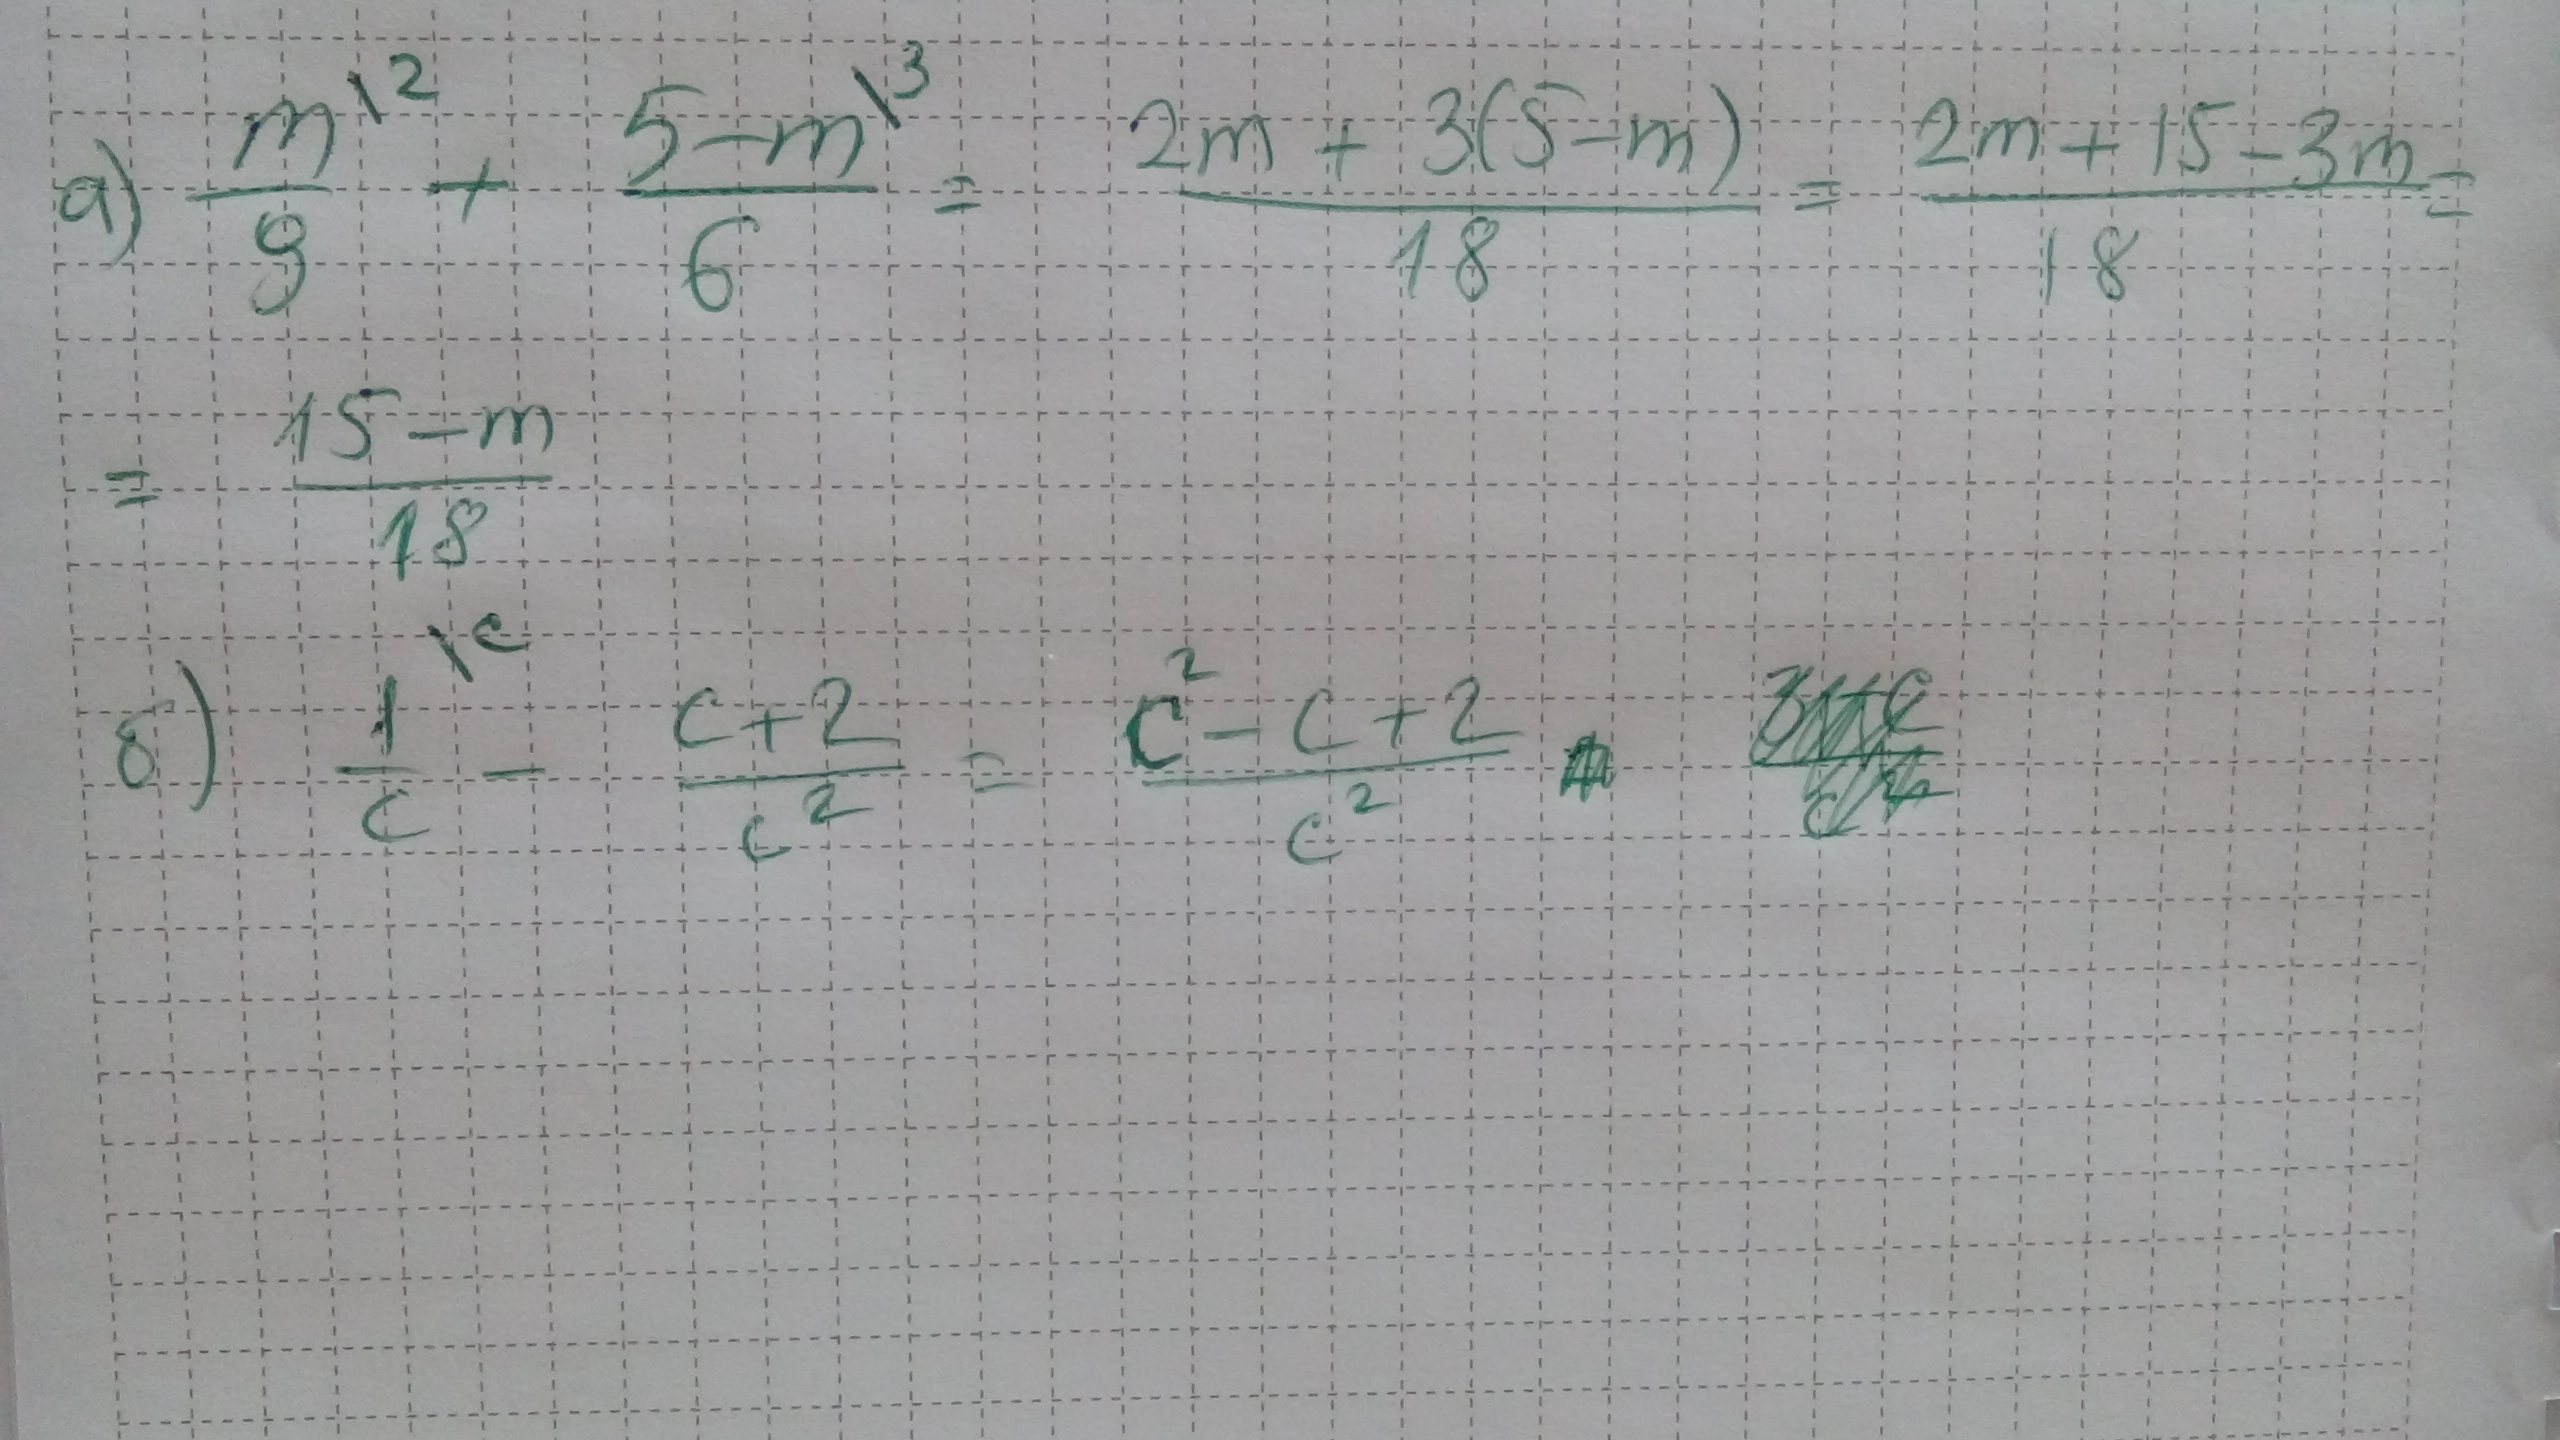 а) m\2/9 + 5-m\3/6 = 2m + 3(5-m)/18 = 2m+15-3m/18 =
= 15-m/18
б) 1\c/c - c+2/c² = c²-c+2/c²